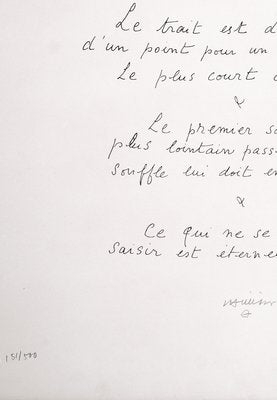 Le trait est d
d'un point pour un
Le plus court c
Le premier so
plus lointain pass
souffle lui doit en
Ce qui ne se
saisir est éterne
151/500